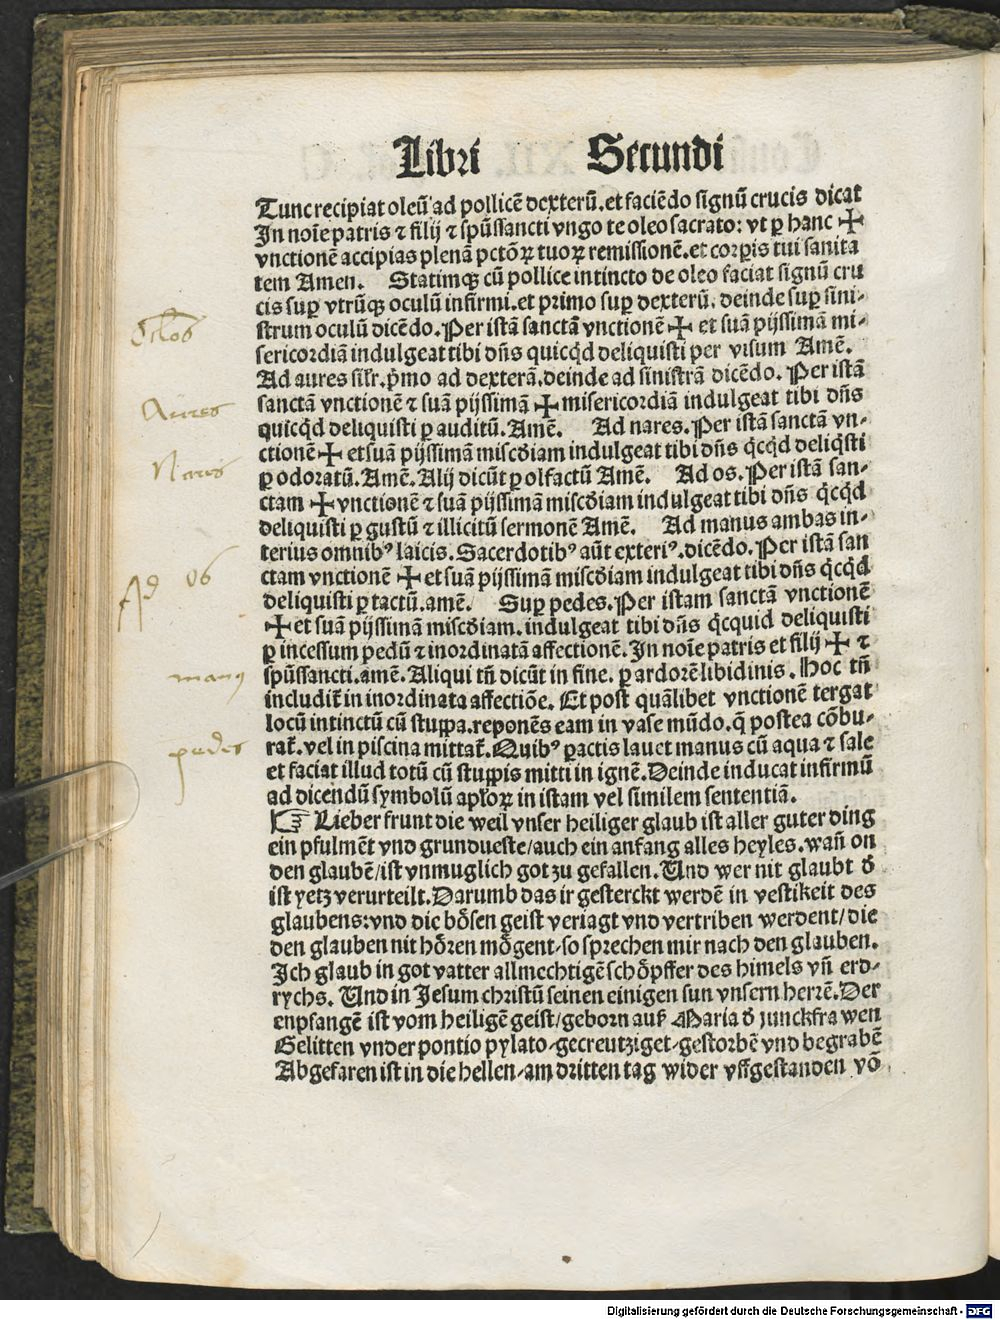 Libri Secundi
Tunc recipiat oleū ad pollicē dexterū. et faciēdo signū crucis dicat
In noīe patris ⁊ filij ⁊ spūssancti vngo te oleo sacrato: vt ꝑ hanc ✠
vnctionē accipias plenā pctōꝝ tuoꝝ remissionē. et corꝑis tui sanita
tem Amen. Statimqꝫ cū pollice intincto de oleo faciat signū cru
cis suꝑ vtrūqꝫ oculū infirmi. et primo suꝑ dexterū, deinde suꝑ sini⸗
strum oculū dicēdo. Per istā sanctā vnctionē ✠ et suā pijssimā mi⸗
sericordiā indulgeat tibi dn̄s quicq̇d deliquisti per visum Amē.
Ad aures sil̄r. pͥmo ad dexterā. deinde ad sinistrā dicēdo. Per istā
sanctā vnctionē ⁊ suā pijssimā ✠ misericordiā indulgeat tibi dn̄s
quicq̇d deliquisti ꝑ auditū. Amē. Ad nares. Per istā sanctā vn⸗
ctionē ✠ et suā pijssimā miscd̄iam indulgeat tibi dn̄s q̇cq̇d deliq̇sti
ꝑ odoratū. Amē. Alij dicūt ꝑ olfactū Amē. Ad os. Per istā san⸗
ctam ✠ vnctionē ⁊ suā pijssimā miscd̄iam indulgeat tibi dn̄s q̇cq̇d
deliquisti ꝑ gustū ⁊ illicitū sermonē Amē. Ad manus ambas in⸗
terius omnibꝰ laicis. Sacerdotibꝰ aūt exteriꝰ. dicēdo. Per istā san
ctam vnctionē ✠ et suā pijssimā miscd̄iam indulgeat tibi dn̄s q̇cq̇d
deliquisti ꝑ tactū. amē. Suꝑ pedes. Per istam sanctā vnctionē
✠ et suā pijssimā miscd̄iam. indulgeat tibi dn̄s q̇cquid deliquisti
ꝑ incessum pedū ⁊ inordinatā affectionē. In noīe patris et filij ✠ ⁊
spūssancti. amē. Aliqui tn̄ dicūt in fine. ꝑ ardorē libidinis. Hoc tn̄
includit̄ in inordinata affectiōe. Et post quālibet vnctionē tergat
locū intinctū cū stuppa. reponēs eam in vase mūdo. q̄ postea cōbu⸗
rat̄. vel in piscina mittat̄. Quibꝰ ꝑactis lauet manus cū aqua ⁊ sale
et faciat illud totū cū stuppis mitti in ignē. Deinde inducat infirmū
ad dicendū symbolū apl̄oꝝ in istam vel similem sententiā.
☞ Lieber frunt die weil vnser heiliger glaub ist aller guter ding
ein pfulmēt vnd grundueste/auch ein anfang alles heyles. wañ on
den glaubē/ist vnmuglich got zu gefallen. Und wer nit glaubt d̄
ist yetz verurteilt. Darumb das ir gesterckt werdē in vestikeit des
glaubens: vnd die bösen geist veriagt vnd vertriben werdent/die
den glauben nit hören mögent/so sprechen mir nach den glauben.
Ich glaub in got vatter allmechtigē schöpffer des himels vn̄ erd⸗
rychs. Und in Jesum christū seinen einigen sun vnsern herrē. Der
enpfangē ist vom heiligē geist/geborn auß Maria d̄ junckfrawen
Gelitten vnder pontio pylato/gecreutziget/gestorbē vnd begrabē
Abgefaren ist in die hellen/am dritten tag wider vffgestanden vō
Aures
Nares
Ad os
manus
pedes
Digitalisierung gefördert durch die Deutsche Forschungsgemeinschaft - DFG